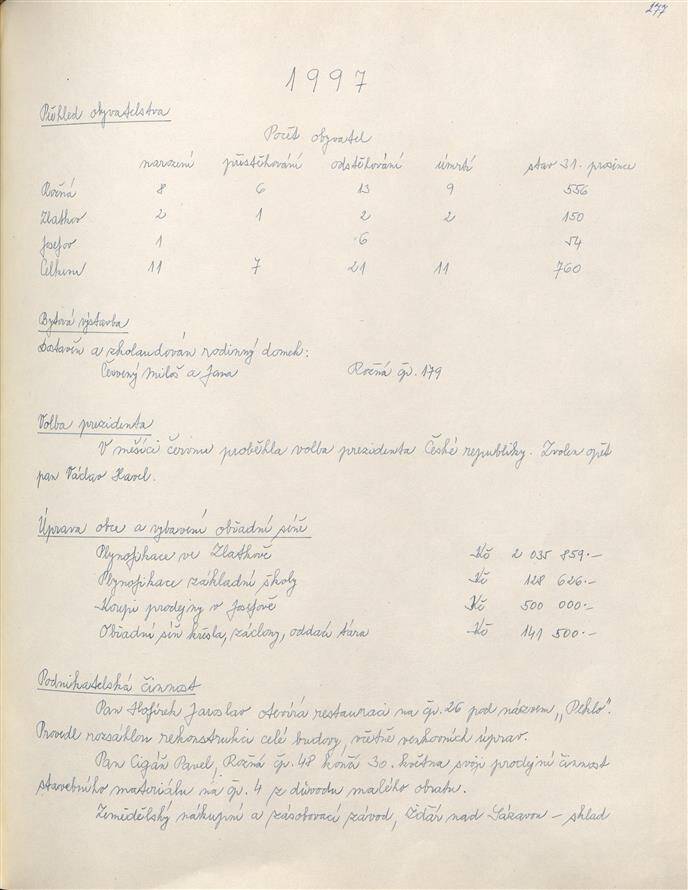 277
1997
Přehled obyvatelstva
Počet obyvatel
narození přistěhování odstěhování úmrtí stav 31. prosince
Rožná 8 6 13 9 556
Zlatkov 2 1 2 2 150
Josefov 1 6 54
Celkem 11 7 21 11 760
Bytová výstavba
Dostavěn a zkolaudován rodinný domek:
Červený Miloš a Jana Rožná čp. 179
Volba prezidenta
V měsíci červnu proběhla volba prezidenta České republiky. Zvolen opět
pan Václav Havel.
Úprava obce a vybavení obřadní síně
Plynofikace ve Zlatkově Kč 2 035 859.-
Plynofikace základní školy Kč 128 626.-
Koupě prodejny v Josefově Kč 500 000.-
Obřadní síň křesla, záclony, oddací Kč 141 500.-
Podnikatelská činnost
Pan Jaroslav otevírá restauraci na čp. 26 pod názvem „Peklo".
Provedl rozsáhlou rekonstrukci celé budovy, včetně venkovních úprav.
Pan Cigáň Pavel, Rožná čp. 48 končí 30. května svoji prodejní činnost
stavebního materiálu na čp. 4 z důvodu malého obratu.
Zemědělský nákupní a zásobovací závod, Žďár nad Sázavou – sklad